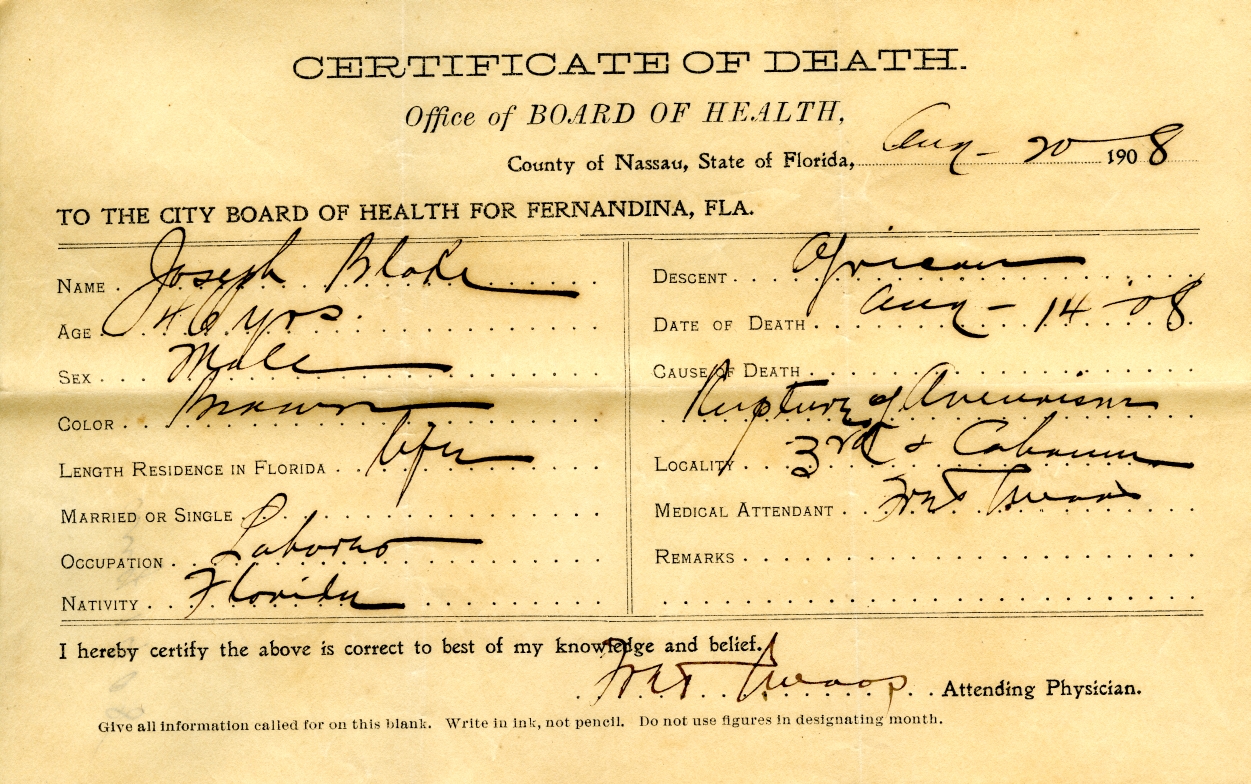 CERTIFICATE OF DEATH.
Office of BOARD OF HEALTH,
County of Nassau, State of Florida, Aug - 20 1908
TO THE CITY BOARD OF HEALTH FOR FERNANDINA, FLA.
NAME Joseph Blake
AGE 46 yrs.
SEX Male
COLOR Brown
LENGTH RESIDENCE IN FLORIDA life
MARRIED OR SINGLE
OCCUPATION Laborer
NATIVITY Florida
DESCENT African
DATE OF DEATH Aug - 14 - 08
CAUSE OF DEATH
Rupture of Aneurism
LOCALITY 3rd &
MEDICAL ATTENDANT
REMARKS
I hereby certify the above is correct to best of my knowledge and belief.
Attending Physician.
Give all information called for on this blank. Write in ink, not pencil. Do not use figures in designating month.